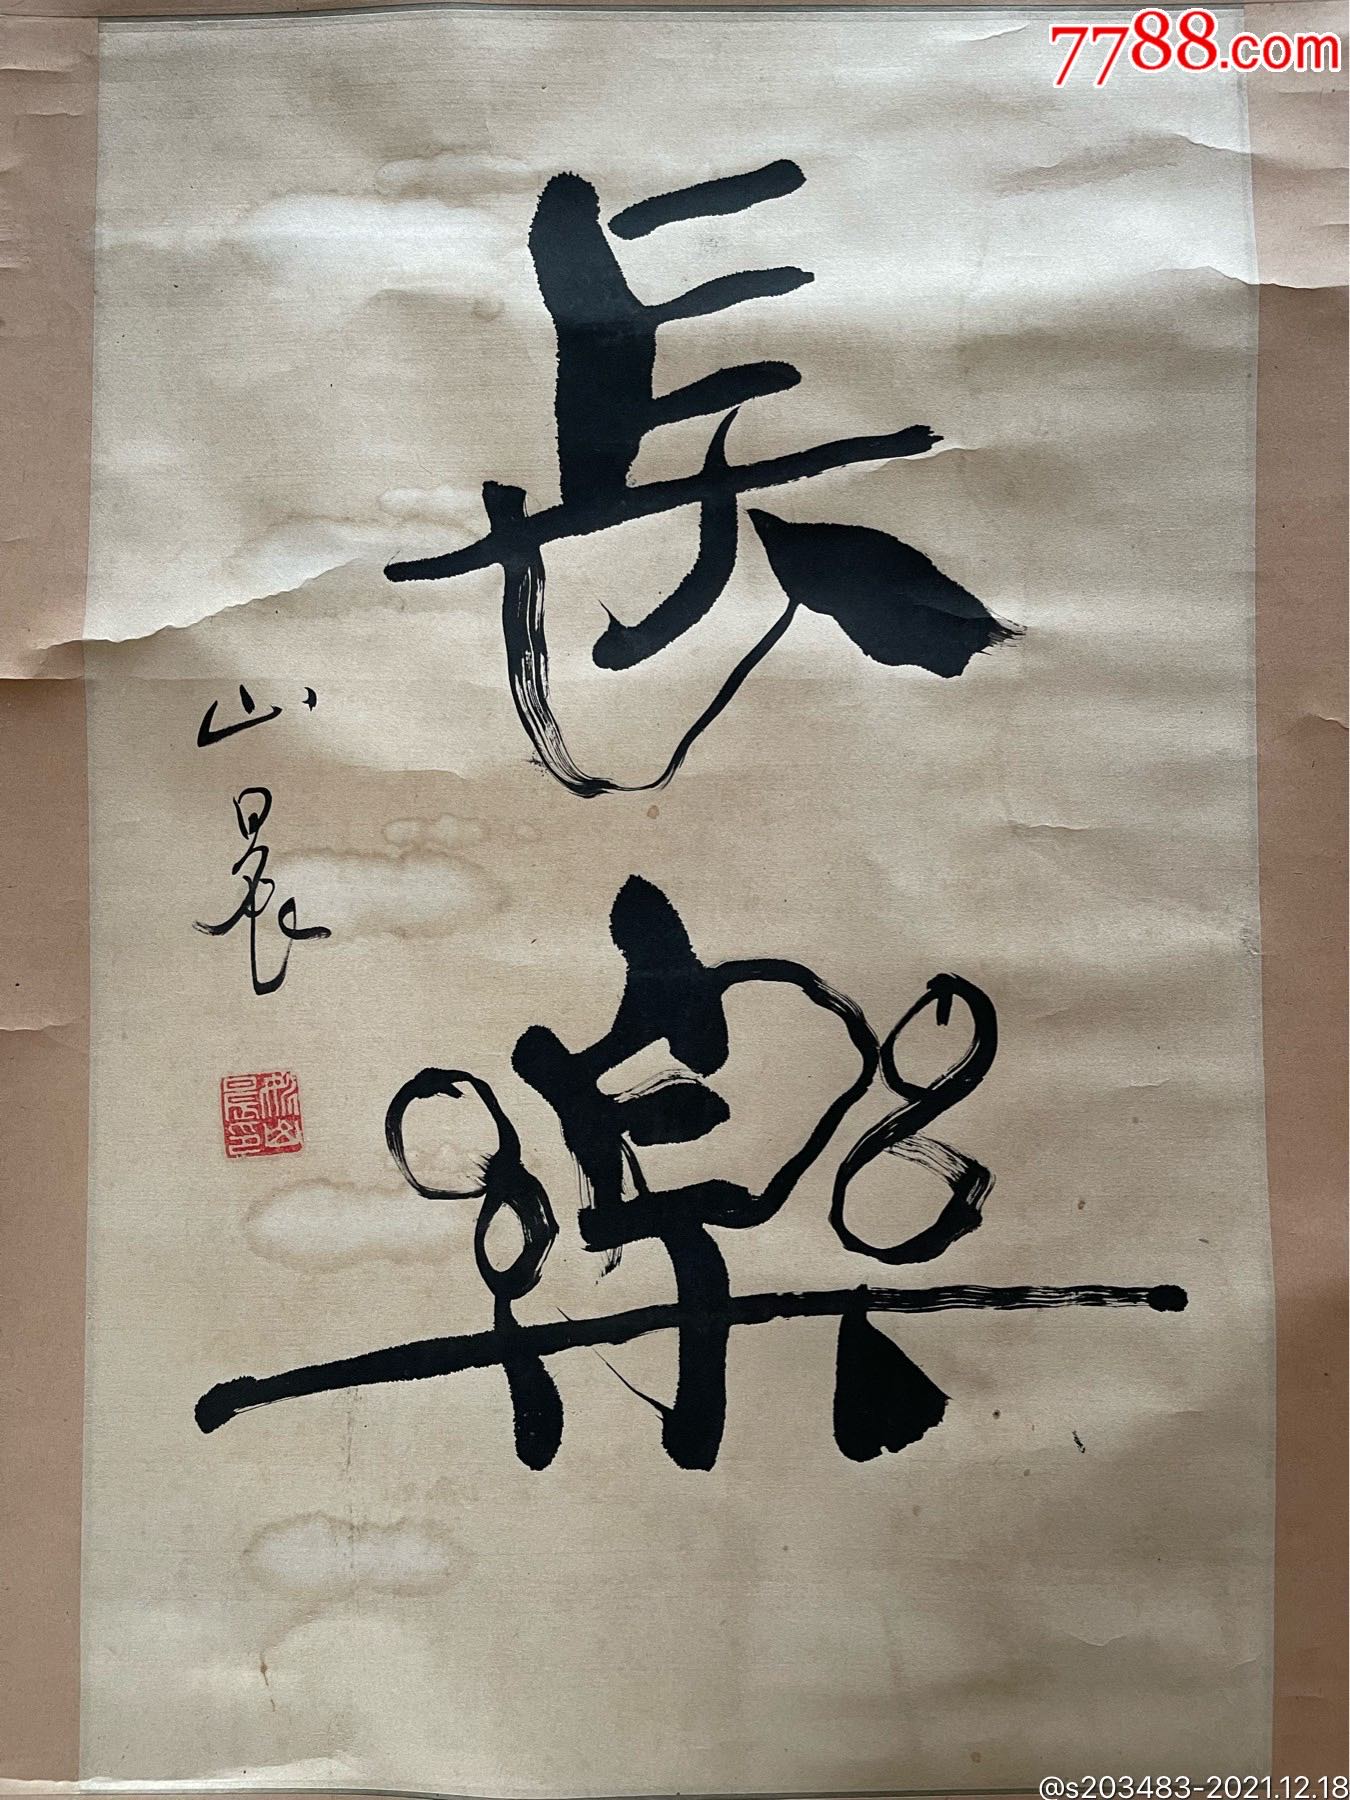 7788.com
長
樂
山晨
@s203483-2021.12.18